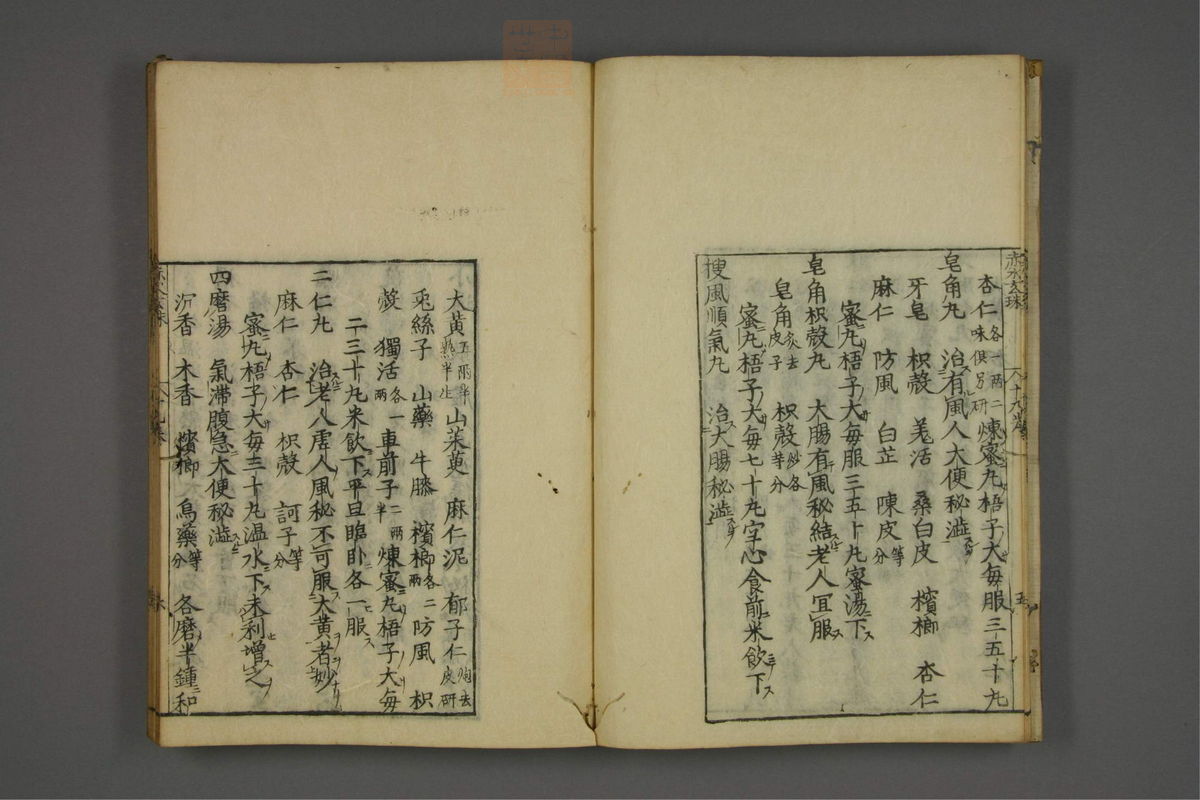 杏仁各一兩二味俱另研煉蜜丸梧子大每服三五十丸
皂角丸　治有風人大便秘澁
牙皂　枳殼　羌活　桑白皮　檳榔　杏仁
麻仁　防風　白芷　陳皮等分
蜜丸梧子大每服三五十丸蜜湯下
皂角枳殼丸　大腸有風秘結老人宜服
皂角炙去皮子　枳殼炒各等分
蜜丸梧子大每七十丸空心食前米飲下
搜風順氣丸　治大腸秘澁
大黃五兩半　山茱萸　麻仁泥　郁子仁炮去皮研
兎絲子　山藥　牛膝　檳榔各二兩　防風　枳
殼　獨活各一兩　車前子二兩半　煉蜜丸梧子大每
二三十丸米飲下平旦臨卧各一服
二仁丸　治老人虛人風秘不可服大黃者妙
麻仁　杏仁　枳殼　訶子等分
蜜丸梧子大每三十丸溫水下未利增之
四磨湯　氣滯腹急大便秘澁
沉香　木香　檳榔　烏藥等分　各磨半鍾和